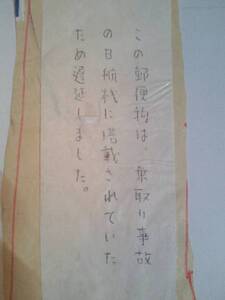 この郵便物は、乗取り事故
の日航機に搭載されていた
ため遅延しました。